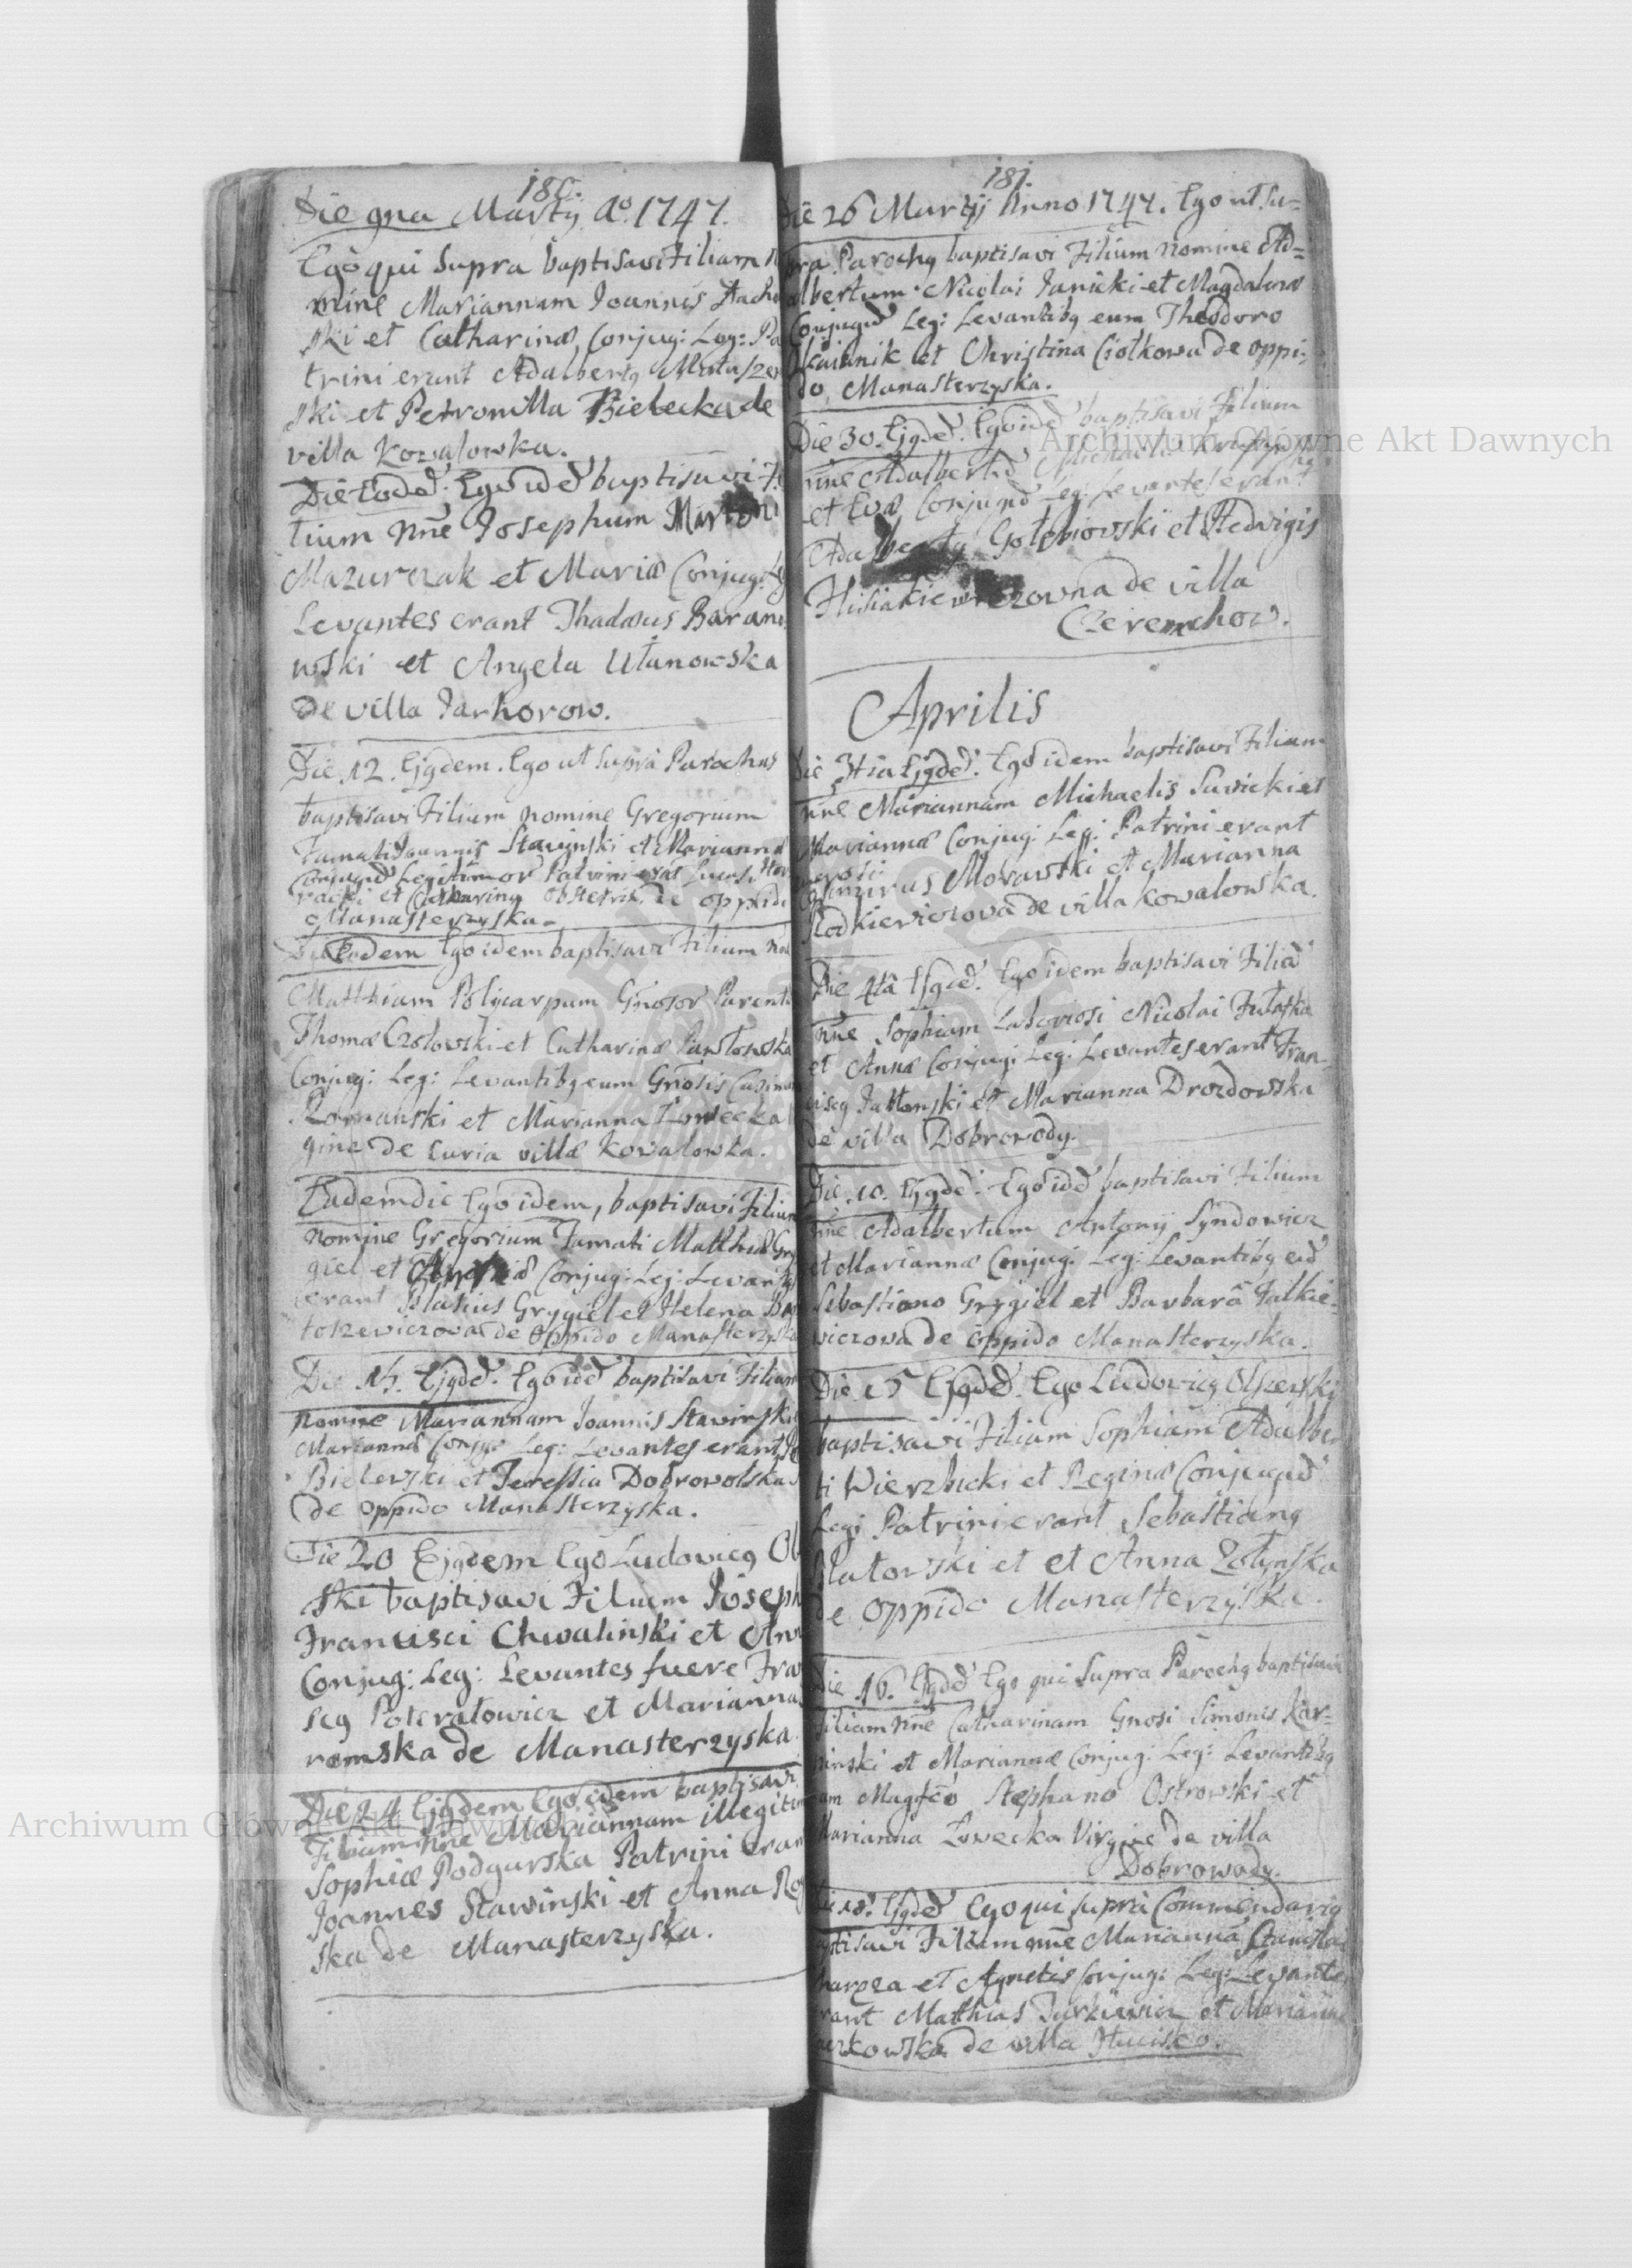 180.
Die 9na Martij Ao. 1747.
Ego qui Supra baptisavi Filiam
mine Mariannam Joannis
ski et Catharinæ, Conjug: Leg: Pa
trini erant Adalbertq Matuszew
ski et Petronilla Bielecka de
villa Kowalowka.
Die Eodem Ego idē baptisavi
lium nn̄e Josephum
Mazurczak et Mariæ Conjug: Leg
Levantes erant Thadæus Barano
wski et Angela Ułanowska
de villa Jarhorow.
Die 12. Ejqdem. Ego ut Supra Parochus
baptisavi Filium nomine Gregorium
Famati Joannis Stawinski et Mariannæ
Conjugū Legitimor Patrini
et Catharina Obstetrix de oppido
Manasterzyska.
Die Eodem Ego idem baptisavi Filium
Matthiam Polycarpum Gn̄osor Parent
Thomæ Czołowski et Catharinæ Pawłowska
Conjug: Leg: Levantibq eum Gn̄osis Casimi
Romanski et Marianna Łowecka
gine de Curia villæ Kowalowka.
Eadem die Ego idem, baptisavi Filium
nomine Gregorium Famati Matthiæ Gry
giel et Conjug: Leg: Levantes
erant Blasius Grygiel et Helena
toszewiczowa de Oppido Manasterzyska
Die 15. Ejqdē. Ego idē baptisavi Filiam
nomine Mariannam Joannis Stawinski
Mariannæ Conjug: Leg: Levantes erant
Bielewski et Teressia Dobrowolska
de oppido Manasterzyska.
Die 20 Ejqdem Ego Ludovicq Ol
ski baptisavi Filium Joseph
Francisci Chwalinski et Ann
Conjug: Leg: Levantes fuere Fra
scq Poterałowicz et Marianna
romska de Manasterzyska.
Die 24 Ejqdem Ego idem baptisavi
Filiam nn̄e Mariannam illegitim
Sophiæ Podgurska Patrini eran
Joannes Stawinski et Anna
ska de Manasterzyska.
181.
Die 26 Martij Anno 1747. Ego ut Su=
pra Parochq baptisavi Filium nomine Ad=
albertum Nicolai Janicki et Magdalenæ
Conjugū Leg: Levantibq eum Theodoro
et Christina Ciołkowa de oppi=
do Manasterzyska.
Die 30. Ejqdē. Ego idē baptisavi Filium
nn̄e Adalbertū Michaelis
et Evæ Conjugū Leg: Levantes erant
Adalbertq Gołębiowski et Hedwigis
de villa
Czeremchow.
Aprilis
Die 3tia Ejqdē. Ego idem baptisavi Filiam
nn̄e Mariannam Michaelis Sawicki et
Mariannæ Conjug: Leg: Patrini erant
Morawski et Marianna
Radkiewiczowa de villa Kowalowska.
Die 4ta Ejqdē. Ego idem baptisavi Filiā
nn̄e Sophiam Laboriosi Nicolai
et Annæ Conjug: Leg: Levantes erant Fran=
ciscq Jabłonski et Marianna Drozdowska
de villa Dobrowody.
Die 10. Ejqdē. Ego idē baptisavi Filium
nn̄e Adalbertum Antonij Syndowicz
et Mariannæ Conjug: Leg: Levantibq eū
Sebastiano Grygiel et Barbarâ Falkie=
wiczowa de oppido Manasterzyska.
Die 15 Ejqdē. Ego Ludovicq Olszewski
baptisavi Filiam Sophiam Adalber
ti Wierzbicki et Reginæ Conjugū
Leg: Patrini erant Sebastianq
et et Anna Zołynska
de oppido Manasterzyska.
Die 16. Ejqdē Ego qui Supra Parochq baptisavi
Filiam nn̄e Catharinam Gnosi Simonis Kar=
et Mariannæ Conjug: Leg: Levantibq
eam Magfco Stephano Ostrowski et
Marianna Łowecka Virgine de villa
Dobrowody.
Die 18. Ejqdē Ego qui supra Commendariq
baptisavi Filiam nn̄e Mariannā Stanislai
et Agnetis Conjug: Leg: Levantes
erant Matthias Jurkiewicz et Marianna
de villa Huciska.
Archiwum Główne Akt Dawnych
Archiwum Główne Akt Dawnych